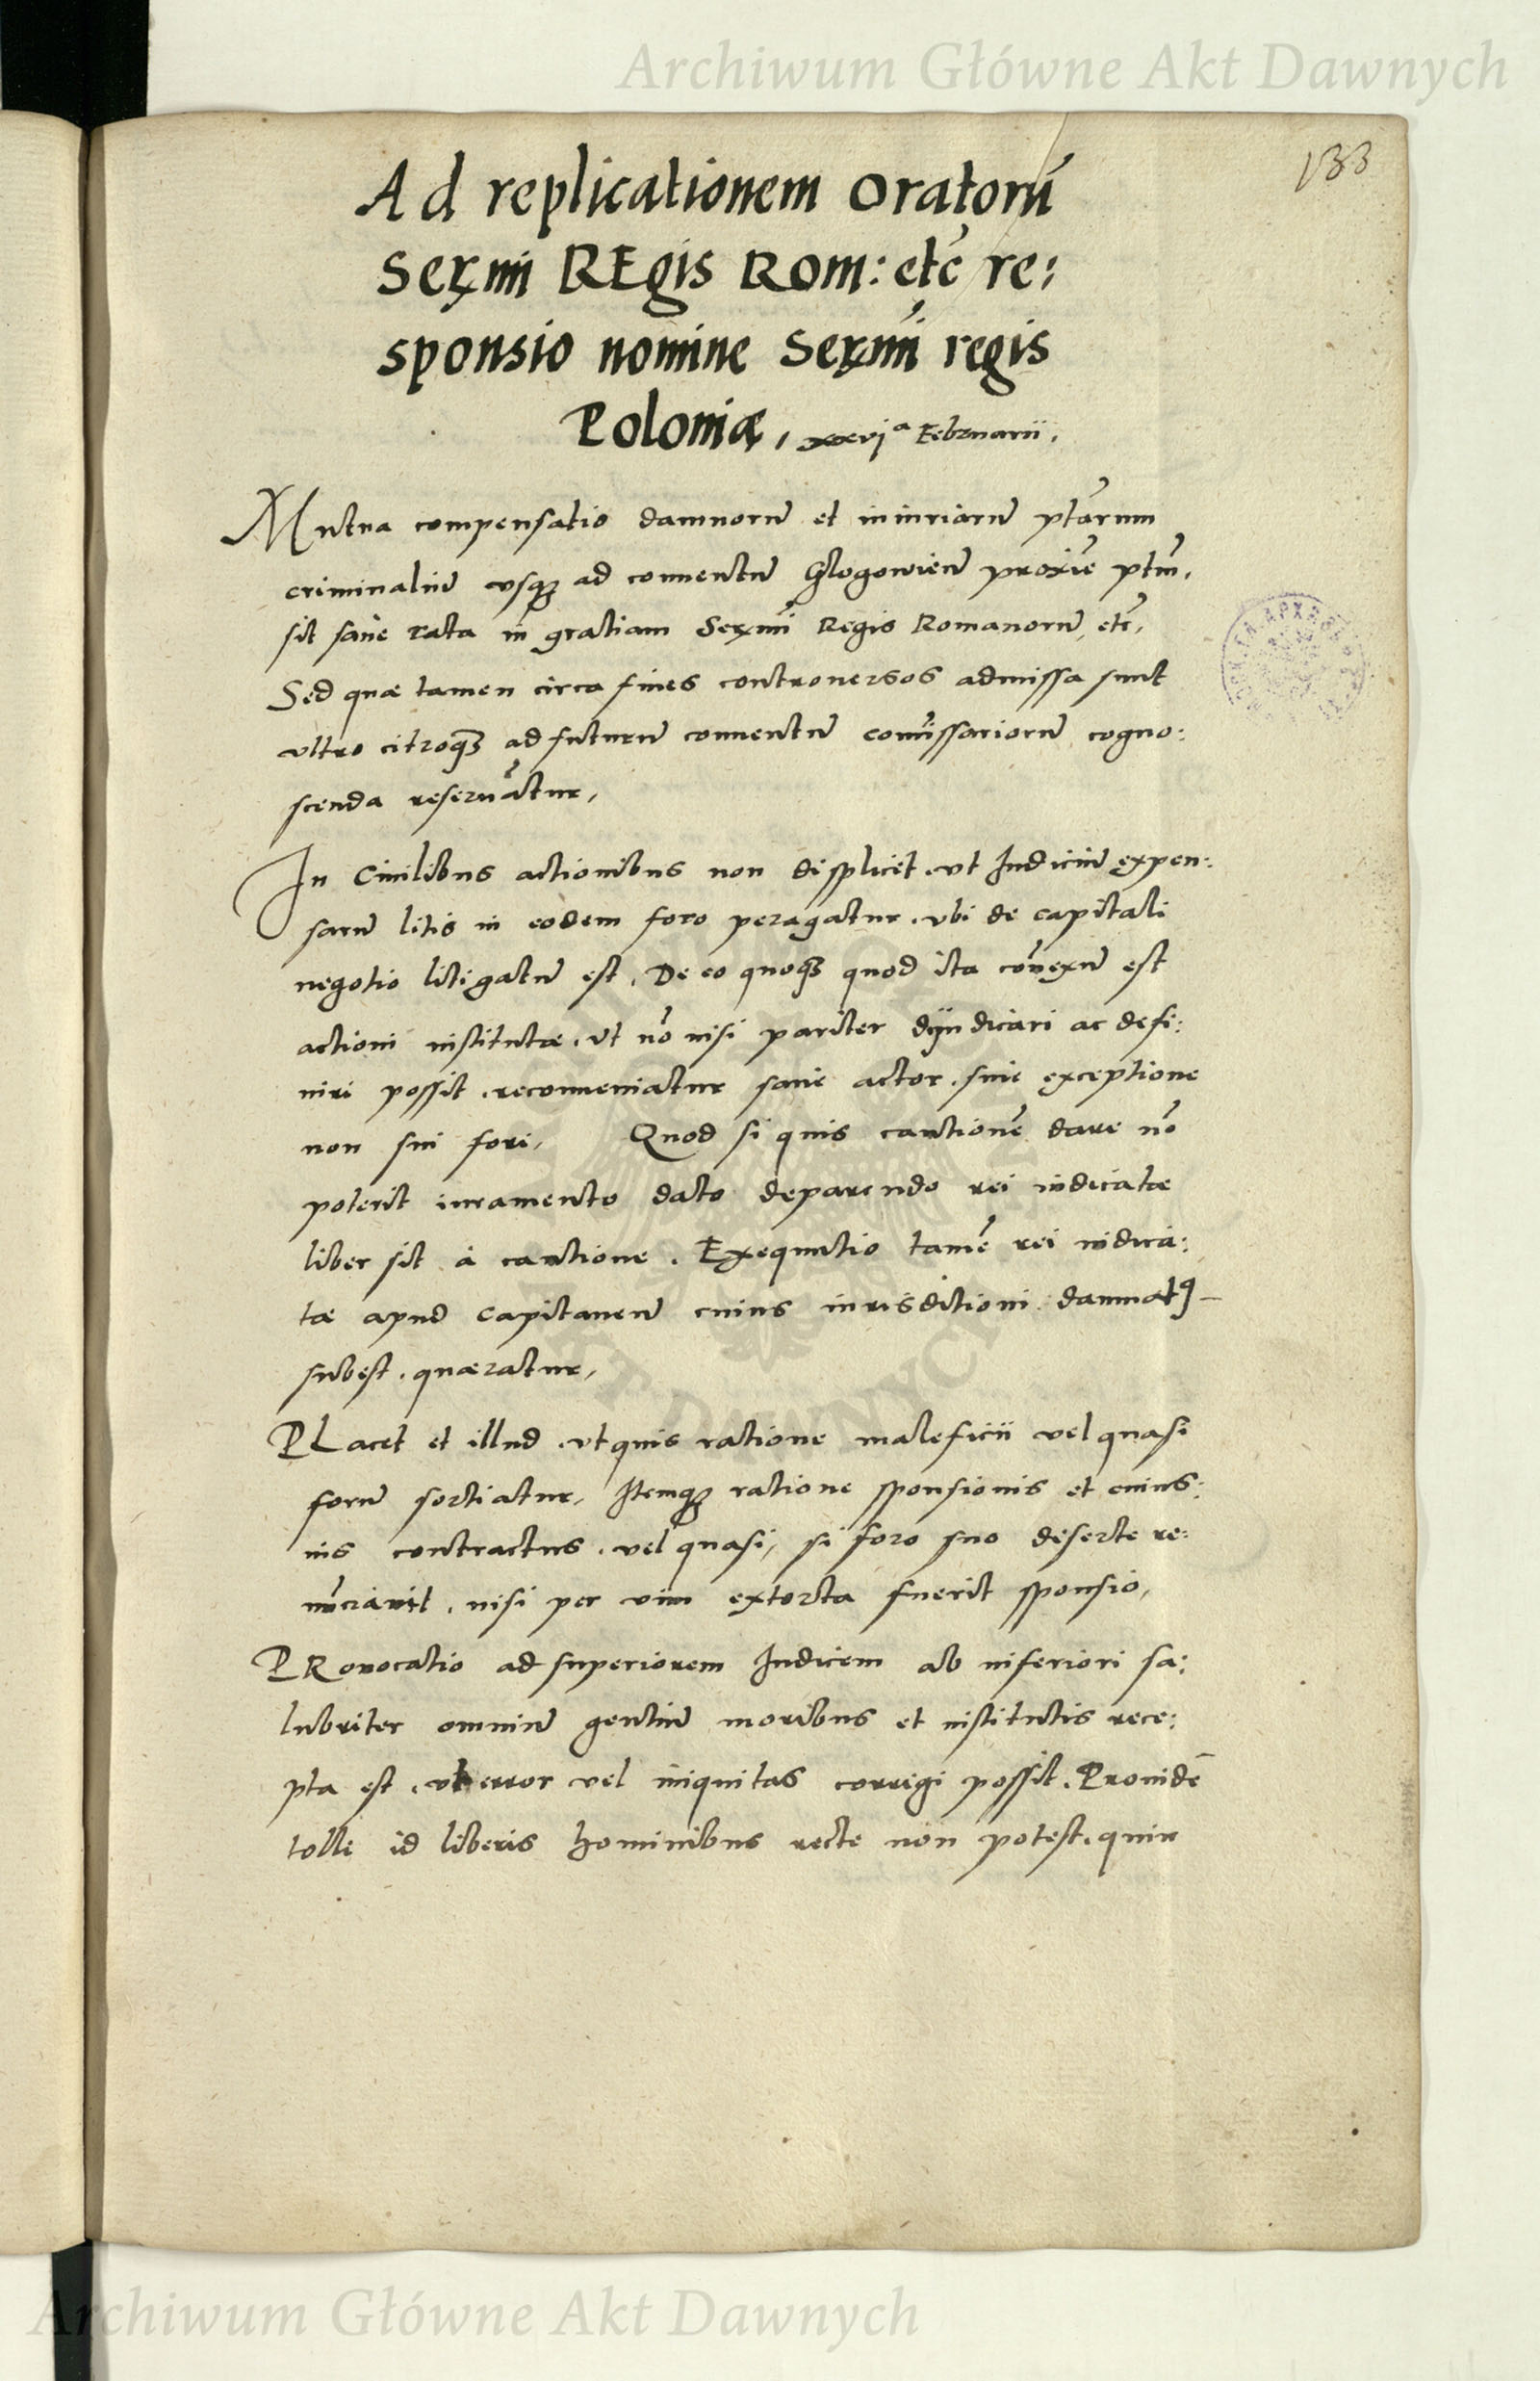 Archiwum Główne Akt Dawnych
133
Ad replicationem Oratorū
Serͫmi REgis Rom: etc̄ re:
sponsio nomine Serͫmi regis
Poloniæ, xxviᵃ Februarii,
Mutua compensatio damnorū et iniuriarū pt̄arum
criminaliū vsqꝫ ad conuentū Glogouieñ proxīe pt̄m,
sit sane rata in gratiam Serͫmi Regis Romanorū etc̄,
Sed quæ tamen circa fines controuersos admissa sunt
vltro citroqꝫ ad futurū conuentū com̄issariorū cogno:
scenda reseruātur,
In Ciuilibus actionibus non displicet, vt Iudiciū expen:
sarū litis in eodem foro peragatur, vbi de capitali
negotio litigatū est. De eo quoqꝫ quod ita con̄exū est
actioni institutæ, vt nō nisi pariter dijudicari ac defi:
niri possit, reconueniatur sane actor, sine exceptione
non sui fori, Quod si quis cautionē dare nō
poterit iuramento dato deparendo rei iudicatæ
liber sit à cautione. Exequutio tamē rei iudica:
tæ apud Capitaneū cuius iurisditioni damnatꝰ
subest, quæratur,
PLacet et illud, vt quis ratione maleficii vel quasi
forū sortiatur, Itemqꝫ ratione sponsionis et cuius:
uis contractus, vel quasi, si foro suo deserte re:
nūciauit, nisi per vim extorta fuerit sponsio,
PRouocatio ad superiorem Iudicem ab inferiori sa:
lubriter omniū gentiū moribus et institutis rece:
pta est, vt error vel iniquitas corrigi possit. Prouidē
tolli id liberis hominibus recte non potest, quin
Archiwum Główne Akt Dawnych